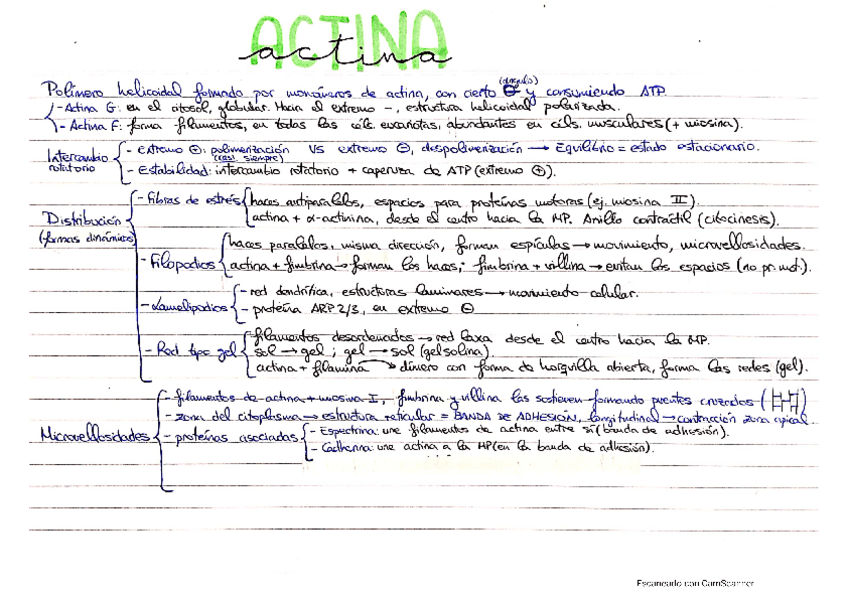 ACTINA
actina
Polímero helicoidal formado por monómeros de actina, con cierto θ (ángulo) y consumiendo ATP.
- Actina G: en el citosol, globular. Hacia el extremo -, estructura helicoidal polarizada.
- Actina F: forma filamentos, en todas las céls. eucariotas, abundantes en céls. musculares (+ miosina).
Intercambio rotatorio
- extremo ⊕: polimerización (casi siempre) VS extremo ⊖, despolimerización → Equilibrio = estado estacionario.
- Estabilidad: intercambio rotatorio + caperuza de ATP (extremo ⊕).
Distribución (formas dinámicas)
- Fibras de estrés
haces antiparalelos, espacios para proteínas motoras (ej. miosina II).
actina + α-actinina, desde el centro hacia la MP. Anillo contráctil (citocinesis).
- Filopodios
haces paralelos, misma dirección, forman espículas → movimiento, microvellosidades.
actina + fimbrina → forman los haces; fimbrina + villina → evitan los espacios (no pr. mot.).
- Lamelipodios
- red dendrítica, estructuras laminares → movimiento celular.
- proteína ARP 2/3, en extremo ⊖
- Red tipo gel
filamentos desordenados → red laxa desde el centro hacia la MP.
sol → gel ; gel → sol (gelsolina).
actina + filamina → dímero con forma de horquilla abierta, forma las redes (gel).
Microvellosidades
- filamentos de actina + miosina I, fimbrina y villina las sostienen formando puentes cruzados
- zona del citoplasma → estructura reticular = BANDA DE ADHESIÓN, longitudinal → contracción zona apical.
- proteínas asociadas
- Espectrina: une filamentos de actina entre sí (banda de adhesión).
- Cadherina: une actina a la MP (en la banda de adhesión).
Escaneado con CamScanner